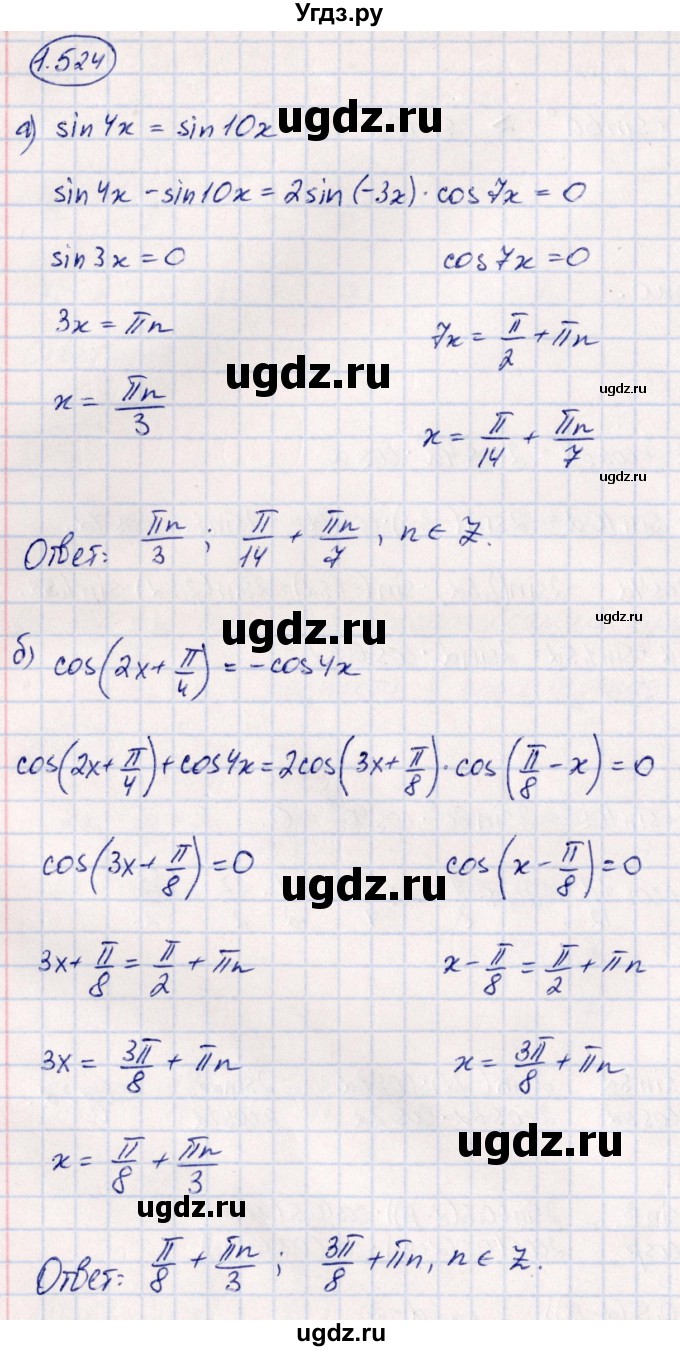 Угдз.ру
1.524
а) sin4x = sin10x
ugdz.ru
sin4x - sin10x = 2sin(-3x) · cos7x = 0
sin3x = 0 cos7x = 0
3x = πn 7x = π/2 + πn
ugdz.ru
ugdz.ru
x = πn/3 x = π/14 + πn/7
ugdz.ru
Ответ: πn/3 ; π/14 + πn/7 , n ∈ Z.
ugdz.ru
ugdz.ru
б) cos(2x + π/4) = -cos4x
cos(2x + π/4) + cos4x = 2cos(3x + π/8) · cos(π/8 - x) = 0
cos(3x + π/8) = 0 cos(x - π/8) = 0
ugdz.ru
3x + π/8 = π/2 + πn x - π/8 = π/2 + πn
3x = 3π/8 + πn x = 3π/8 + πn
ugdz.ru
x = π/8 + πn/3
ugdz.ru
Ответ: π/8 + πn/3 ; 3π/8 + πn, n ∈ Z.
ugdz.ru